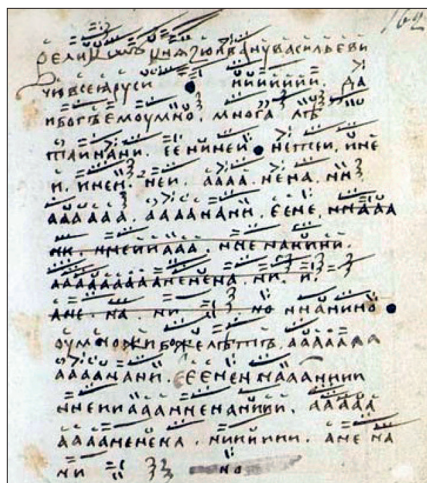 162
великому князю Ивану Васильеви
чю всея руси . ииииии . да
и богъ ему умно . многа лѣ
таинани . ее нинеи . нетеи . ине
и . инеи . неи . аааа . нена . ни
аааааа . аааанани . еене . ннааа
ни . ннеииааа . нне нанини .
аааааааааненена . ни . и .
ане . на ни . но ннанино
оумножи боже лѣтъ . ааааааа
аааанани . еененнаааннии
ннеииаааннненаниии . ааааа
ааааненена . нииииии . ане на
ни но